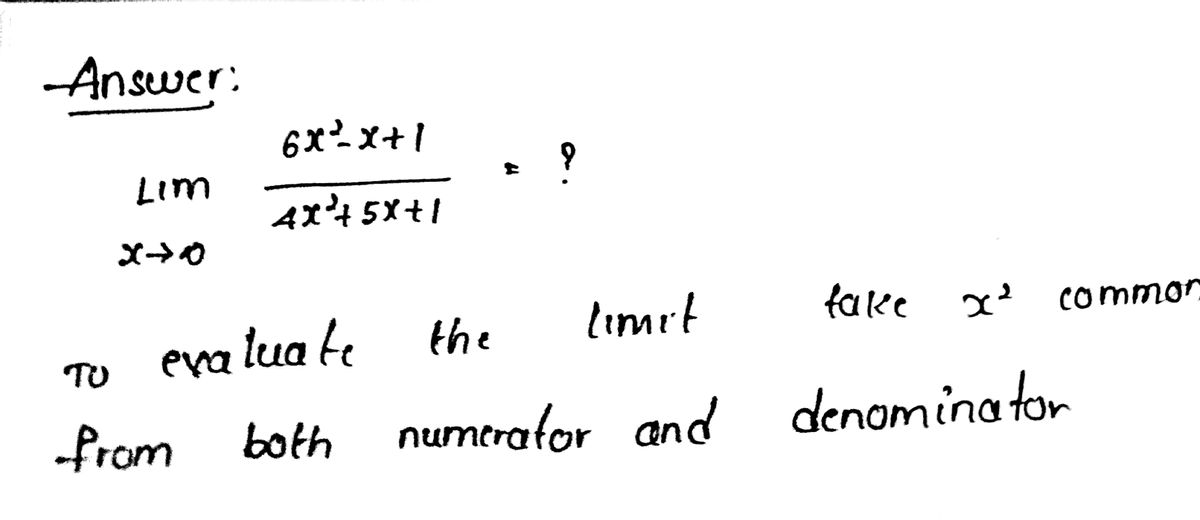 Answer:
Lim 6x²-x+1 / 4x²+5x+1 = ?
x→0
To evaluate the limit take x² common
from both numerator and denominator